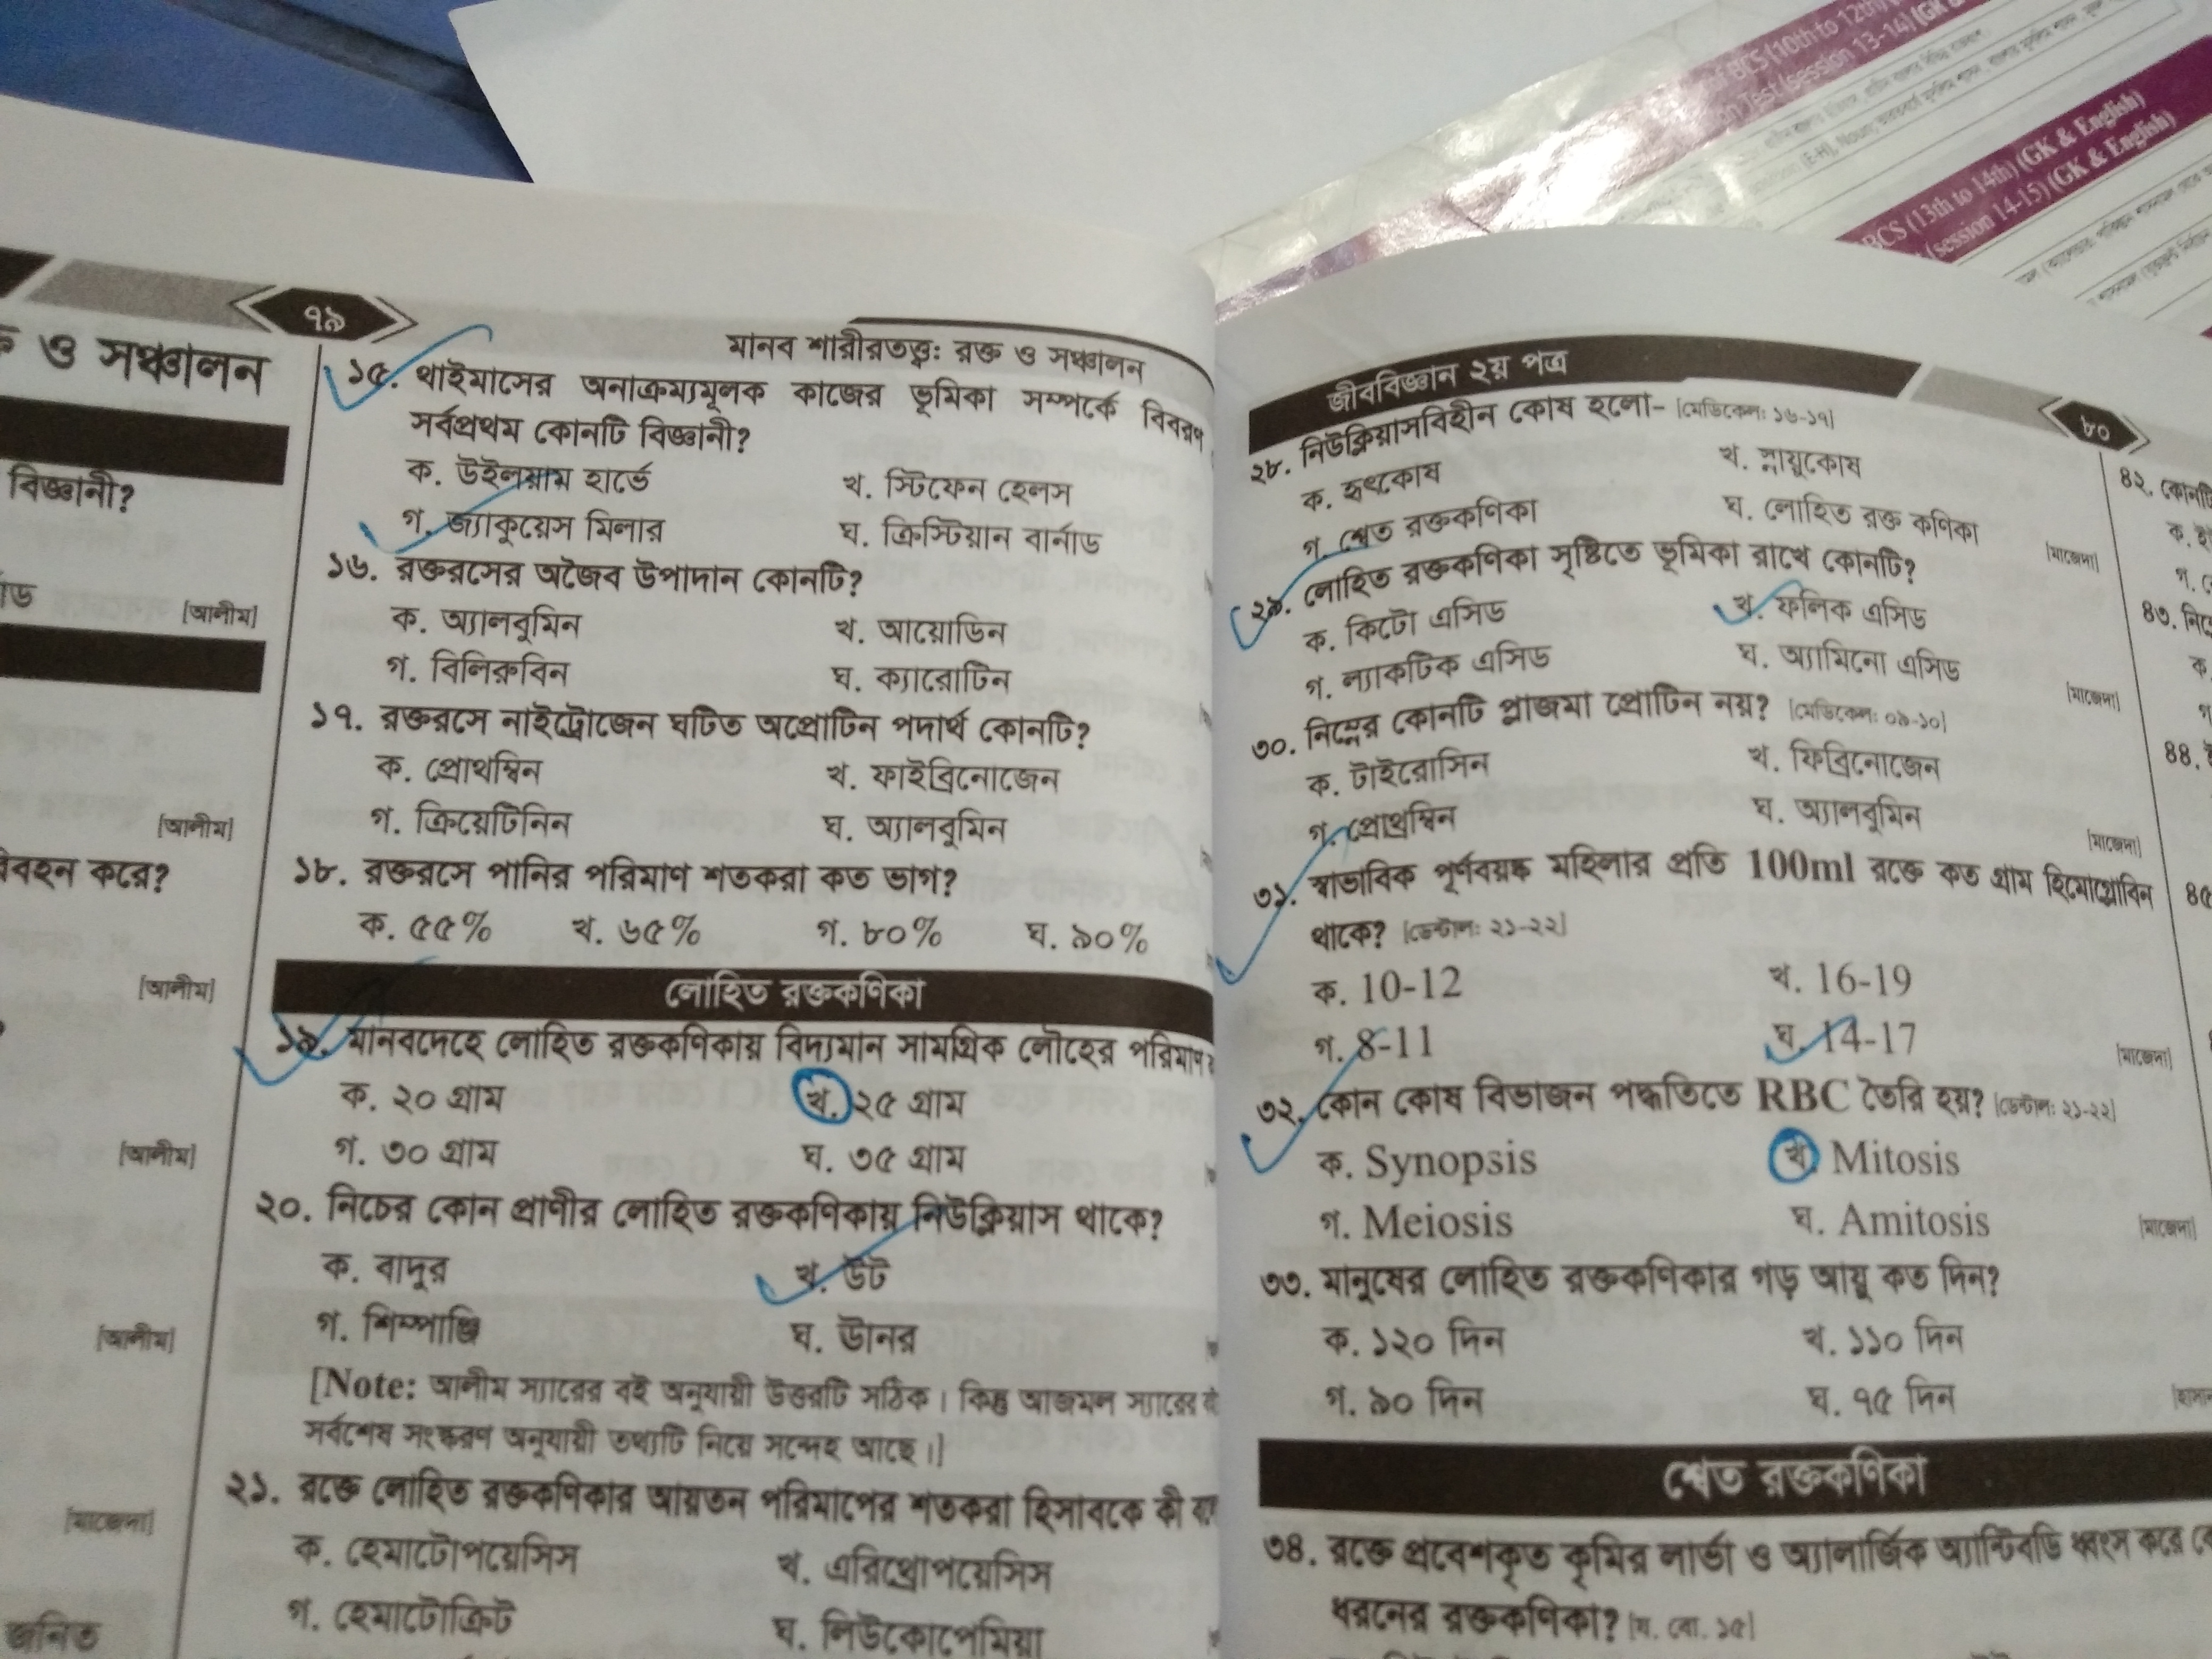 BCS (10th to 12th)
Test (session 13-14) (GK &
BCS (13th to 14th) (GK & English)
(session 14-15) (GK & English)
ও সঞ্চালন
বিজ্ঞানী?
[আলীম]
[আলীম]
করে?
[আলীম]
[আলীম]
[আলীম]
[মাজেদা]
জনিত
৭৯
মানব শারীরতত্ত্ব: রক্ত ও সঞ্চালন
১৫. থাইমাসের অনাক্রম্যমূলক কাজের ভূমিকা সম্পর্কে বিবরণ
সর্বপ্রথম কোনটি বিজ্ঞানী?
ক. উইলয়াম হার্ভে খ. স্টিফেন হেলস
গ. জ্যাকুয়েস মিলার ঘ. ক্রিস্টিয়ান বার্নাড
১৬. রক্তরসের অজৈব উপাদান কোনটি?
ক. অ্যালবুমিন খ. আয়োডিন
গ. বিলিরুবিন ঘ. ক্যারোটিন
১৭. রক্তরসে নাইট্রোজেন ঘটিত অপ্রোটিন পদার্থ কোনটি?
ক. প্রোথম্বিন খ. ফাইব্রিনোজেন
গ. ক্রিয়েটিনিন ঘ. অ্যালবুমিন
১৮. রক্তরসে পানির পরিমাণ শতকরা কত ভাগ?
ক. ৫৫% খ. ৬৫% গ. ৮০% ঘ. ৯০%
লোহিত রক্তকণিকা
১৯. মানবদেহে লোহিত রক্তকণিকায় বিদ্যমান সামগ্রিক লৌহের পরিমাণ
ক. ২০ গ্রাম খ. ২৫ গ্রাম
গ. ৩০ গ্রাম ঘ. ৩৫ গ্রাম
২০. নিচের কোন প্রাণীর লোহিত রক্তকণিকায় নিউক্লিয়াস থাকে?
ক. বাদুর খ. উট
গ. শিম্পাঞ্জি ঘ. ভানর
[Note: আলীম স্যারের বই অনুযায়ী উত্তরটি সঠিক। কিন্তু আজমল স্যারের
সর্বশেষ সংস্করণ অনুযায়ী তথ্যটি নিয়ে সন্দেহ আছে।]
২১. রক্তে লোহিত রক্তকণিকার আয়তন পরিমাপের শতকরা হিসাবকে কী
ক. হেমাটোপয়েসিস খ. এরিথ্রোপয়েসিস
গ. হেমাটোক্রিট ঘ. লিউকোপেমিয়া
জীববিজ্ঞান ২য় পত্র
৮০
২৮. নিউক্লিয়াসবিহীন কোষ হলো- [মেডিকেল: ১৬-১৭]
ক. হৃৎকোষ খ. স্নায়ুকোষ
গ. শ্বেত রক্তকণিকা ঘ. লোহিত রক্ত কণিকা
[মাজেদা]
২৯. লোহিত রক্তকণিকা সৃষ্টিতে ভূমিকা রাখে কোনটি?
ক. কিটো এসিড খ. ফলিক এসিড
গ. ল্যাকটিক এসিড ঘ. অ্যামিনো এসিড
[মাজেদা]
৩০. নিম্নের কোনটি প্লাজমা প্রোটিন নয়? [মেডিকেল: ০৯-১০]
ক. টাইরোসিন খ. ফিব্রিনোজেন
গ. প্রোথ্রম্বিন ঘ. অ্যালবুমিন
[মাজেদা]
৩১. স্বাভাবিক পূর্ণবয়স্ক মহিলার প্রতি 100ml রক্তে কত গ্রাম হিমোগ্লোবিন
থাকে? [ডেন্টাল: ২১-২২]
ক. 10-12 খ. 16-19
গ. 8-11 ঘ. 14-17
[মাজেদা]
৩২. কোন কোষ বিভাজন পদ্ধতিতে RBC তৈরি হয়? [ডেন্টাল: ২১-২২]
ক. Synopsis খ. Mitosis
গ. Meiosis ঘ. Amitosis
[মাজেদা]
৩৩. মানুষের লোহিত রক্তকণিকার গড় আয়ু কত দিন?
ক. ১২০ দিন খ. ১১০ দিন
গ. ৯০ দিন ঘ. ৭৫ দিন
শ্বেত রক্তকণিকা
৩৪. রক্তে প্রবেশকৃত কৃমির লার্ভা ও অ্যালার্জিক অ্যান্টিবডি ধ্বংস করে
ধরনের রক্তকণিকা? [য. বো. ১৫]
৪২.
৪৩.
৪৪.